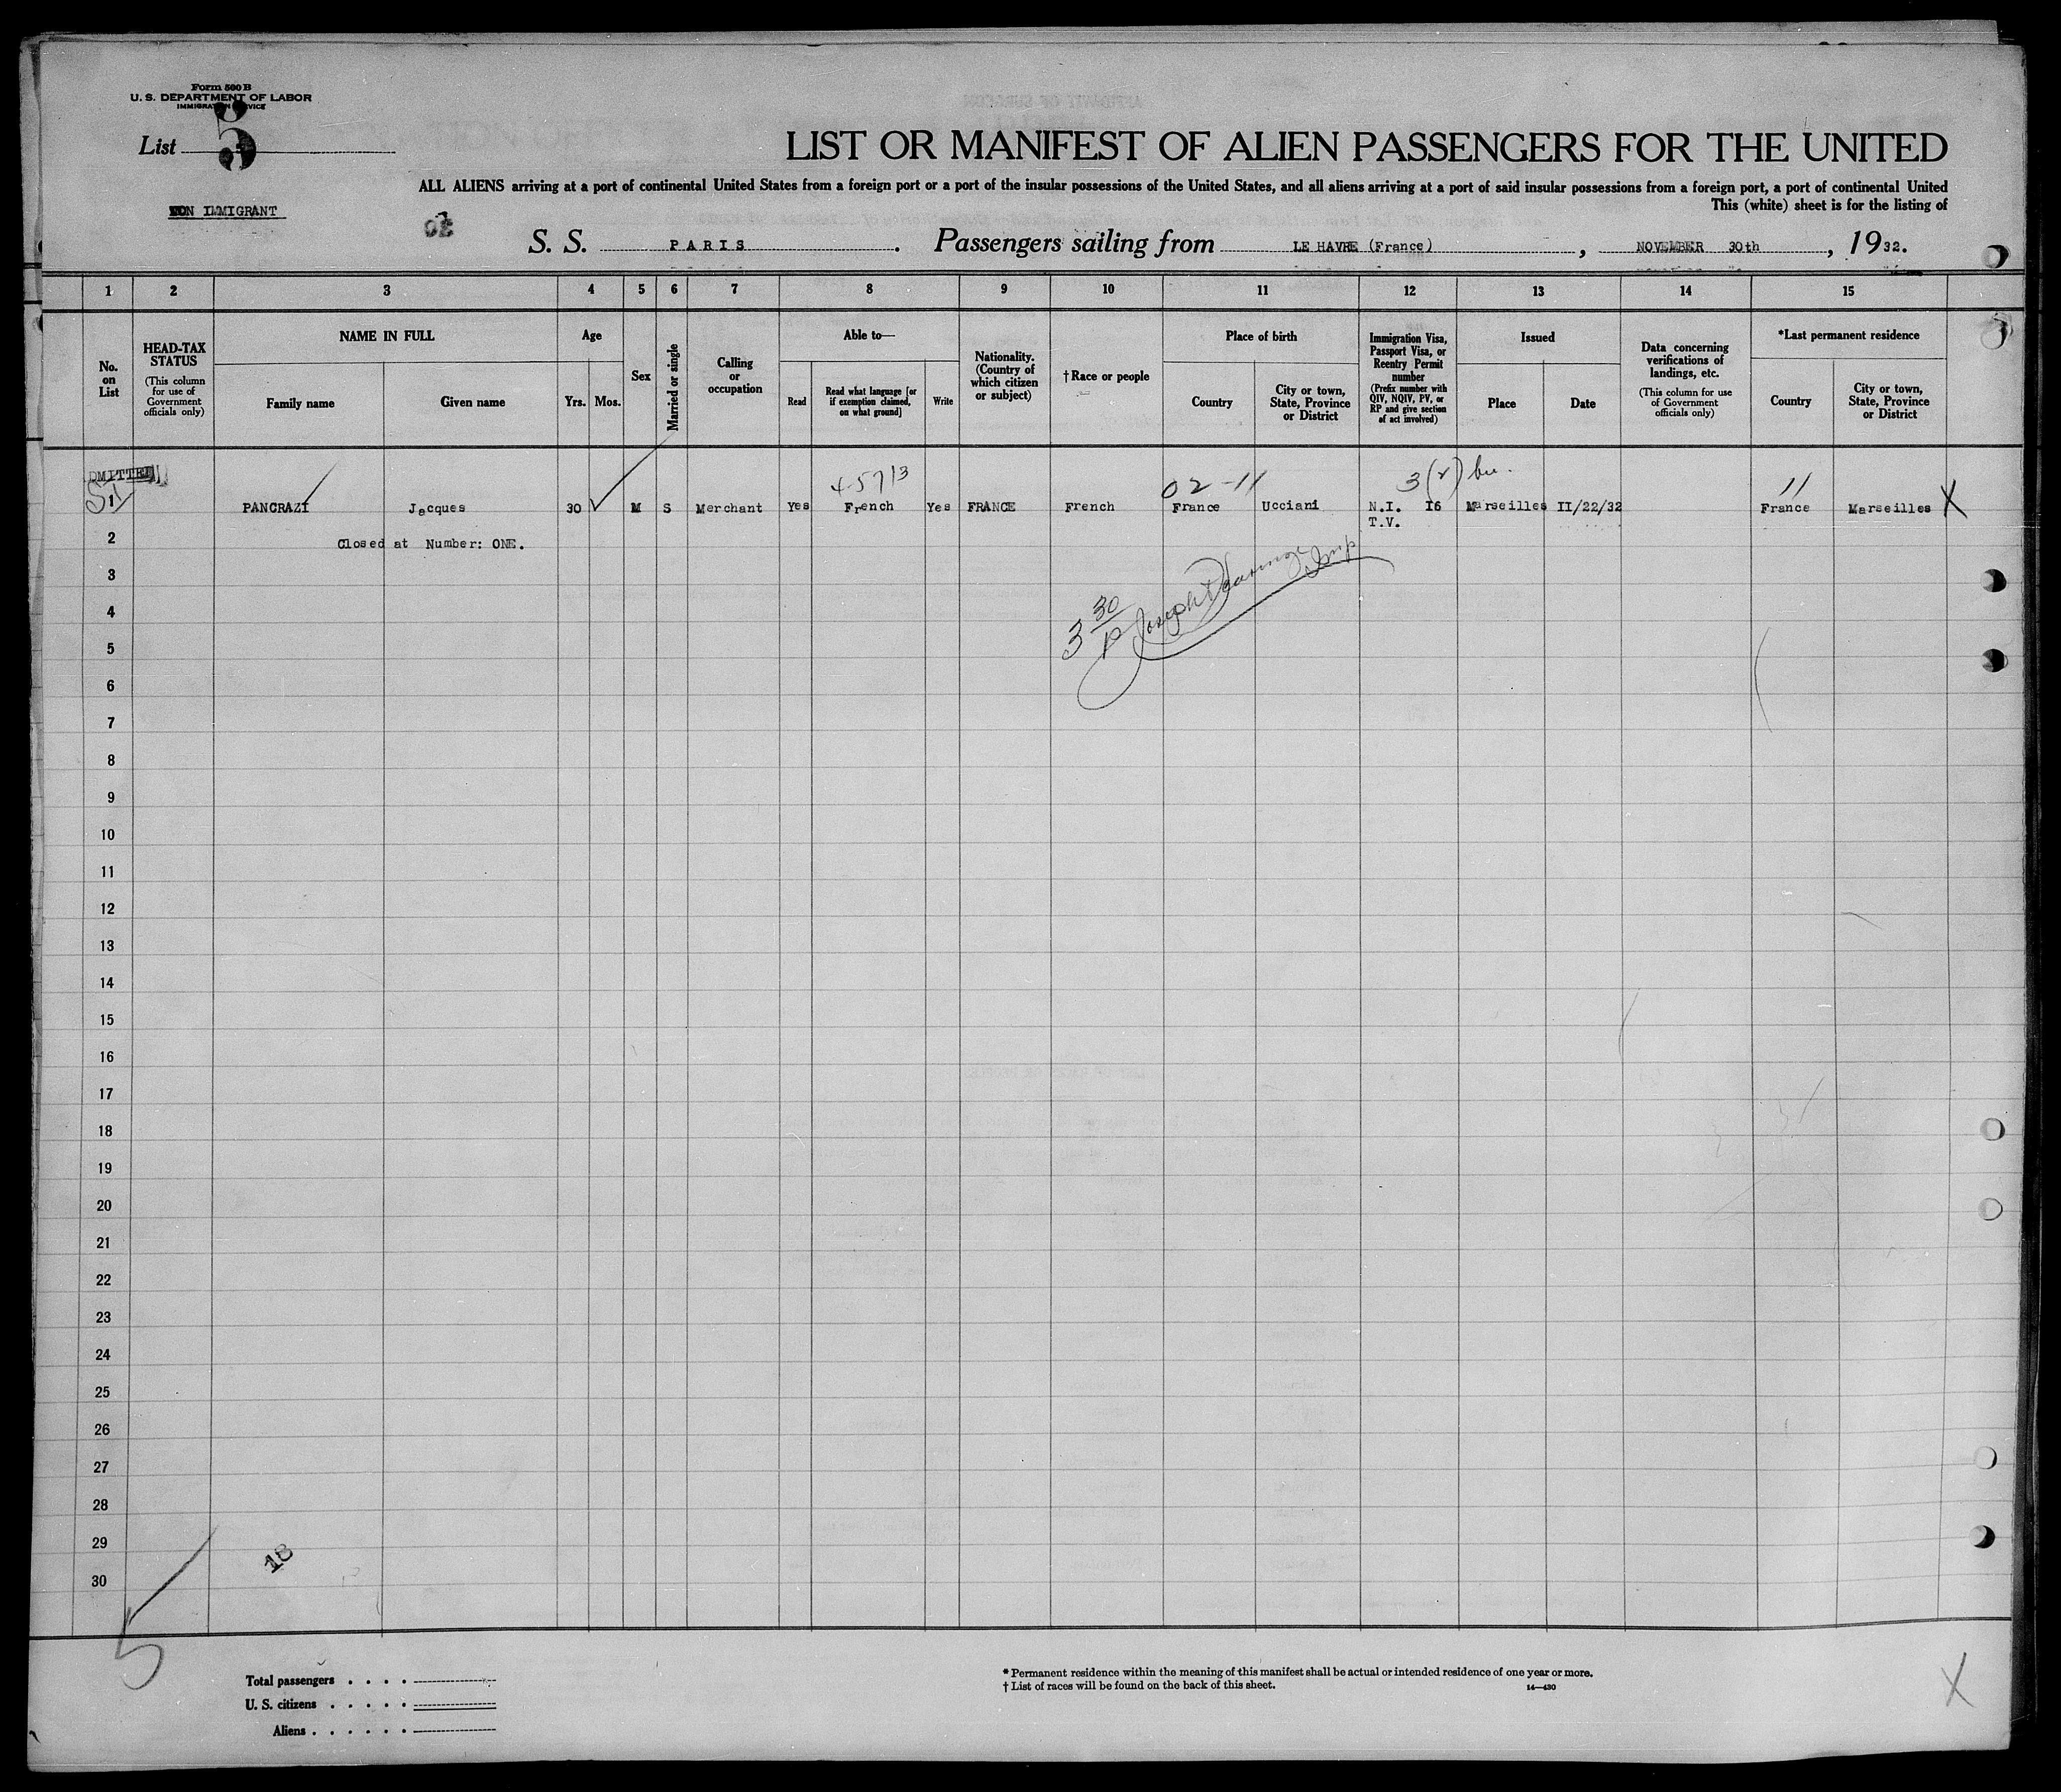 Form 500 B
U. S. DEPARTMENT OF LABOR
IMMIGRATION SERVICE
List 5
NON IMMIGRANT
LIST OR MANIFEST OF ALIEN PASSENGERS FOR THE UNITED
ALL ALIENS arriving at a port of continental United States from a foreign port or a port of the insular possessions of the United States, and all aliens arriving at a port of said insular possessions from a foreign port, a port of continental United
This (white) sheet is for the listing of
S. S. PARIS. Passengers sailing from LE HAVRE (France), NOVEMBER 30th, 1932.
1 2 3 4 5 6 7 8 9 10 11 12 13 14 15
No. on List
HEAD-TAX STATUS
(This column for use of Government officials only)
NAME IN FULL
Family name
Given name
Age
Yrs.
Mos.
Sex
Married or single
Calling or occupation
Able to—
Read
Read what language [or if exemption claimed, on what ground]
Write
Nationality. (Country of which citizen or subject)
†Race or people
Place of birth
Country
City or town, State, Province or District
Immigration Visa, Passport Visa, or Reentry Permit number
(Prefix number with QIV, NQIV, PV, or RP and give section of act involved)
Issued
Place
Date
Data concerning verifications of landings, etc.
(This column for use of Government officials only)
*Last permanent residence
Country
City or town, State, Province or District
DMITTED
4-5713
02-11
3(2)
11
1 PANCRAZI Jacques 30 M S Merchant Yes French Yes FRANCE French France Ucciani N.I. I6 Marseilles II/22/32 France Marseilles X
T.V.
2 Closed at Number: ONE.
3
3 30 P Joseph
4
5
6
7
8
9
10
11
12
13
14
15
16
17
18
19
20
21
22
23
24
25
26
27
28
29
18
30
5
Total passengers
U. S. citizens
Aliens
* Permanent residence within the meaning of this manifest shall be actual or intended residence of one year or more.
† List of races will be found on the back of this sheet.
14—430
X